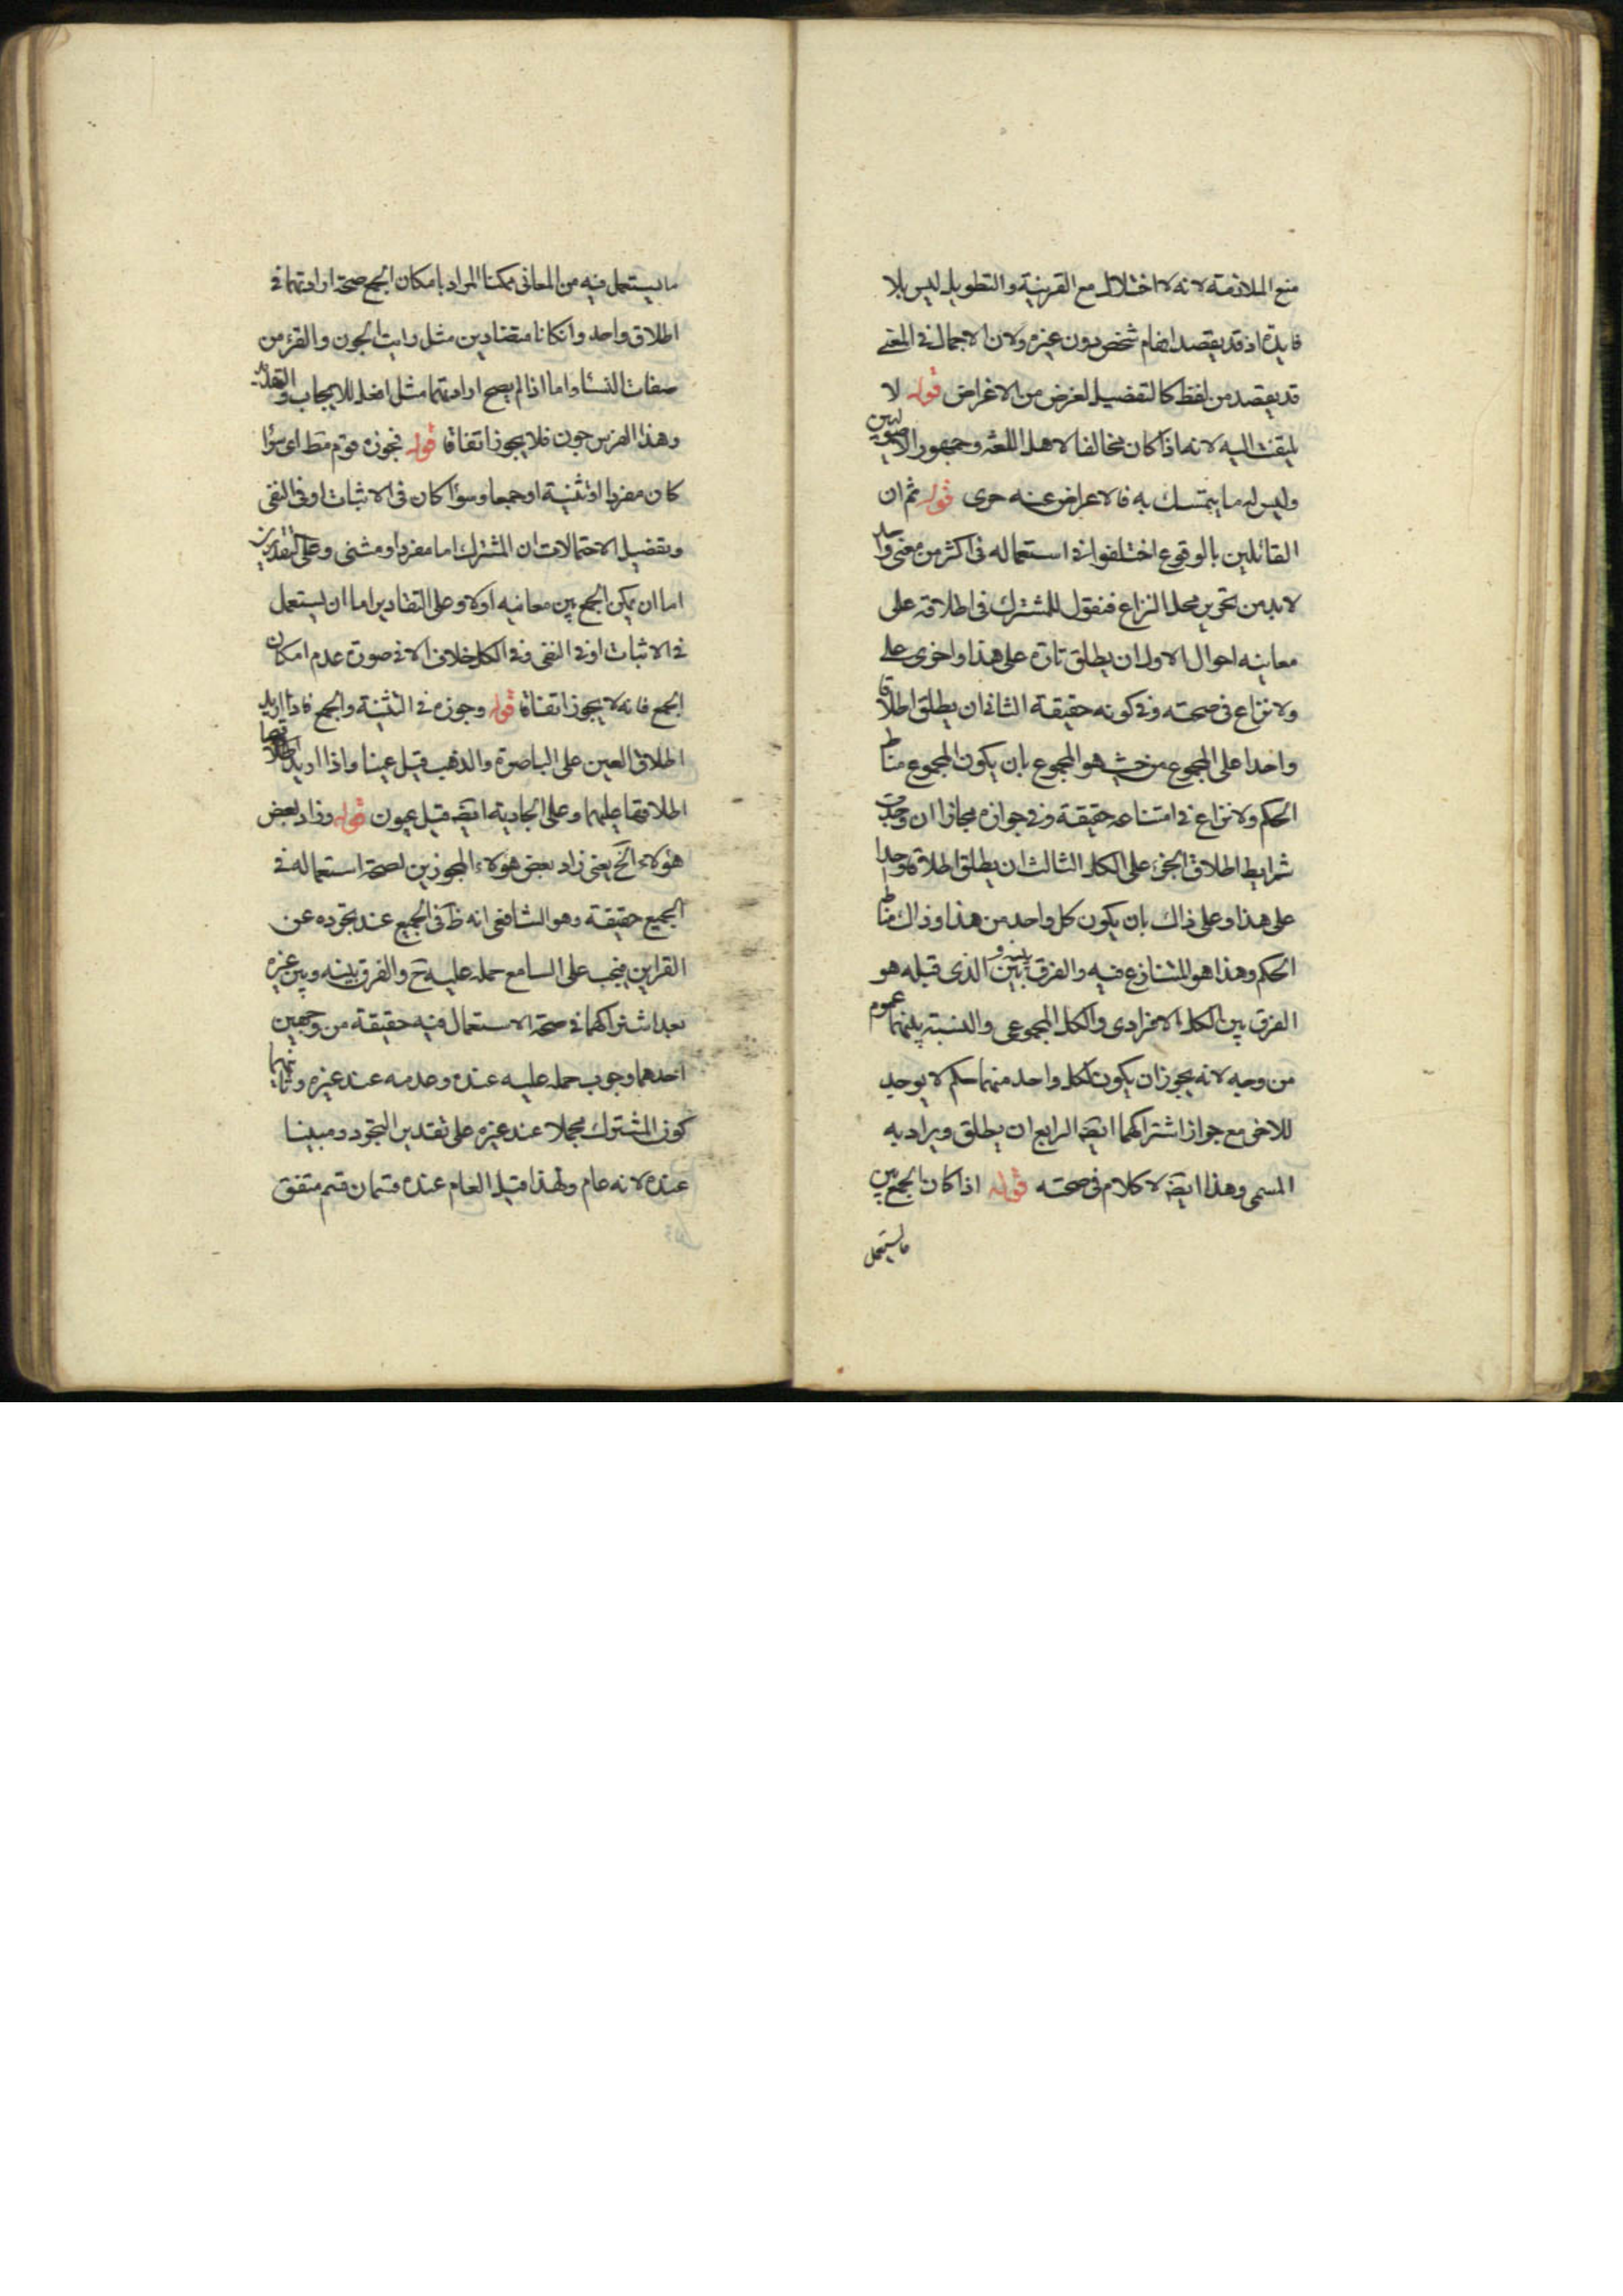 منع الملازمة لانه لا اختلال مع القرينة والتطويل ليس بلا
فايدة اذ قد يقصد افهام شخص دون غيره ولان الاجمال في المعنى
قد يقصد من لفظ كالتفضيل لغرض من الاغراض قوله لا
يلتفت اليه لانه اذا كان مخالفا لاهل اللغة وجمهور الاصوليين
وليس له ما يتمسك به فالاعراض عنه حرى قوله ثم ان
القائلين بالوقوع اختلفوا في استعماله في اكثر من معنى واحد
لا بد من تحرير محل النزاع فنقول للمشترك في اطلاقه على
معانيه احوال الاول ان يطلق تارة على هذا واخرى على
ولا نزاع في صحته وفي كونه حقيقة الثاني ان يطلق اطلاقا
واحدا على المجموع من حيث هو المجموع بان يكون المجموع مناط
الحكم ولا نزاع في امتناعه حقيقة وفي جوازه مجازا ان وجدت
شرايط اطلاق الجزء على الكل الثالث ان يطلق اطلاقا واحدا
على هذا وعلى ذاك بان يكون كل واحد من هذا وذاك مناط
الحكم وهذا هو المتنازع فيه والفرق بينه وبين الذى قبله هو
الفرق بين الكل الافرادى والكل المجموعى والنسبة بينهما عموم
من وجه لانه يجوز ان يكون لكل واحد منهما حكم لا يوجد
للاخر مع جواز اشتراكهما ايضا الرابع ان يطلق ويراد به
المسمى وهذا ايضا لا كلام في صحته قوله اذا كان الجمع بين
ما يستعمل
ما يستعمل فيه من المعانى ممكنا المراد بامكان الجمع صحة ارادتهما في
اطلاق واحد وان كانا متضادين مثل رايت الجون والقرء من
صفات النساء واما اذا لم يصح ارادتهما مثل افعل للايجاب والتهديد
وهذا الفرس جون فلا يجوز اتفاقا قوله فجوزه قوم مط اى سواء
كان مفردا او تثنية او جمعا وسواء كان في الاثبات او في النفى
وتفصيل الاحتمالات ان المشترك اما مفرد او مثنى وعلى التقديرين
اما ان يمكن الجمع بين معانيه اولا وعلى التقادير اما ان يستعمل
في الاثبات او في النفى وفي الكل خلاف الا في صورة عدم امكان
الجمع فانه لا يجوز اتفاقا قوله وجوزه في التثنية والجمع فاذا اريد
اطلاق العين على الباصرة والذهب قيل عينا واذا اريد
اطلاقها عليهما وعلى الجارية ايضا قيل عيون قوله وزاد بعض
هؤلاء الخ يعنى زاد بعض هؤلاء المجوزين لصحة استعماله في
الجميع حقيقة وهو الشافعى انه ظ في الجميع عند تجرده عن
القراين فيجب على السامع حمله عليه ح والفرق بينه وبين غيره
بعد اشتراكهما في صحة الاستعمال فيه حقيقة من وجهين
احدهما وجوب حمله عليه عنده وعدمه عند غيره وثانيهما
كون المشترك مجملا عند غيره على تقدير التجرد ومبينا
عنده لانه عام ولهذا قيل العام عنده قسمان قسم متفق